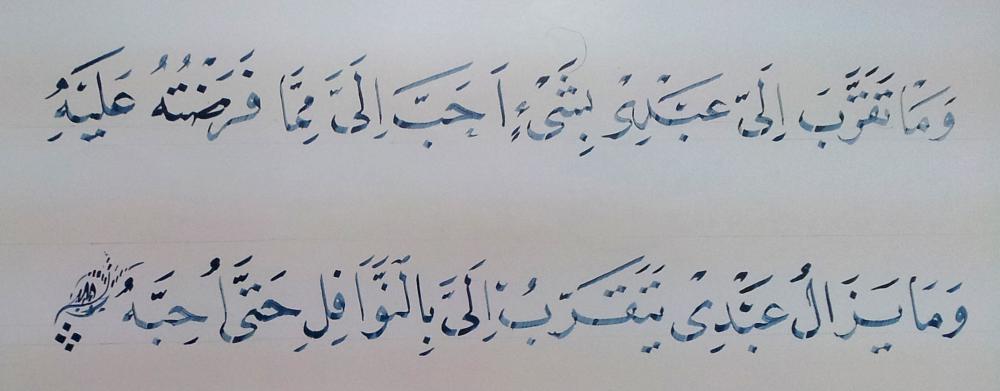 وَمَا تَقَرَّبَ اِلَىَّ عَبْدِىْ بِشَىْءٍ اَحَبَّ اِلَىَّ مِمَّا فَرَضْتُهُ عَلَيْهِ
وَمَا يَزَالُ عَبْدِىْ يَتَقَرَّبُ اِلَىَّ بِالنَّوَافِلِ حَتَّى اُحِبَّهُ